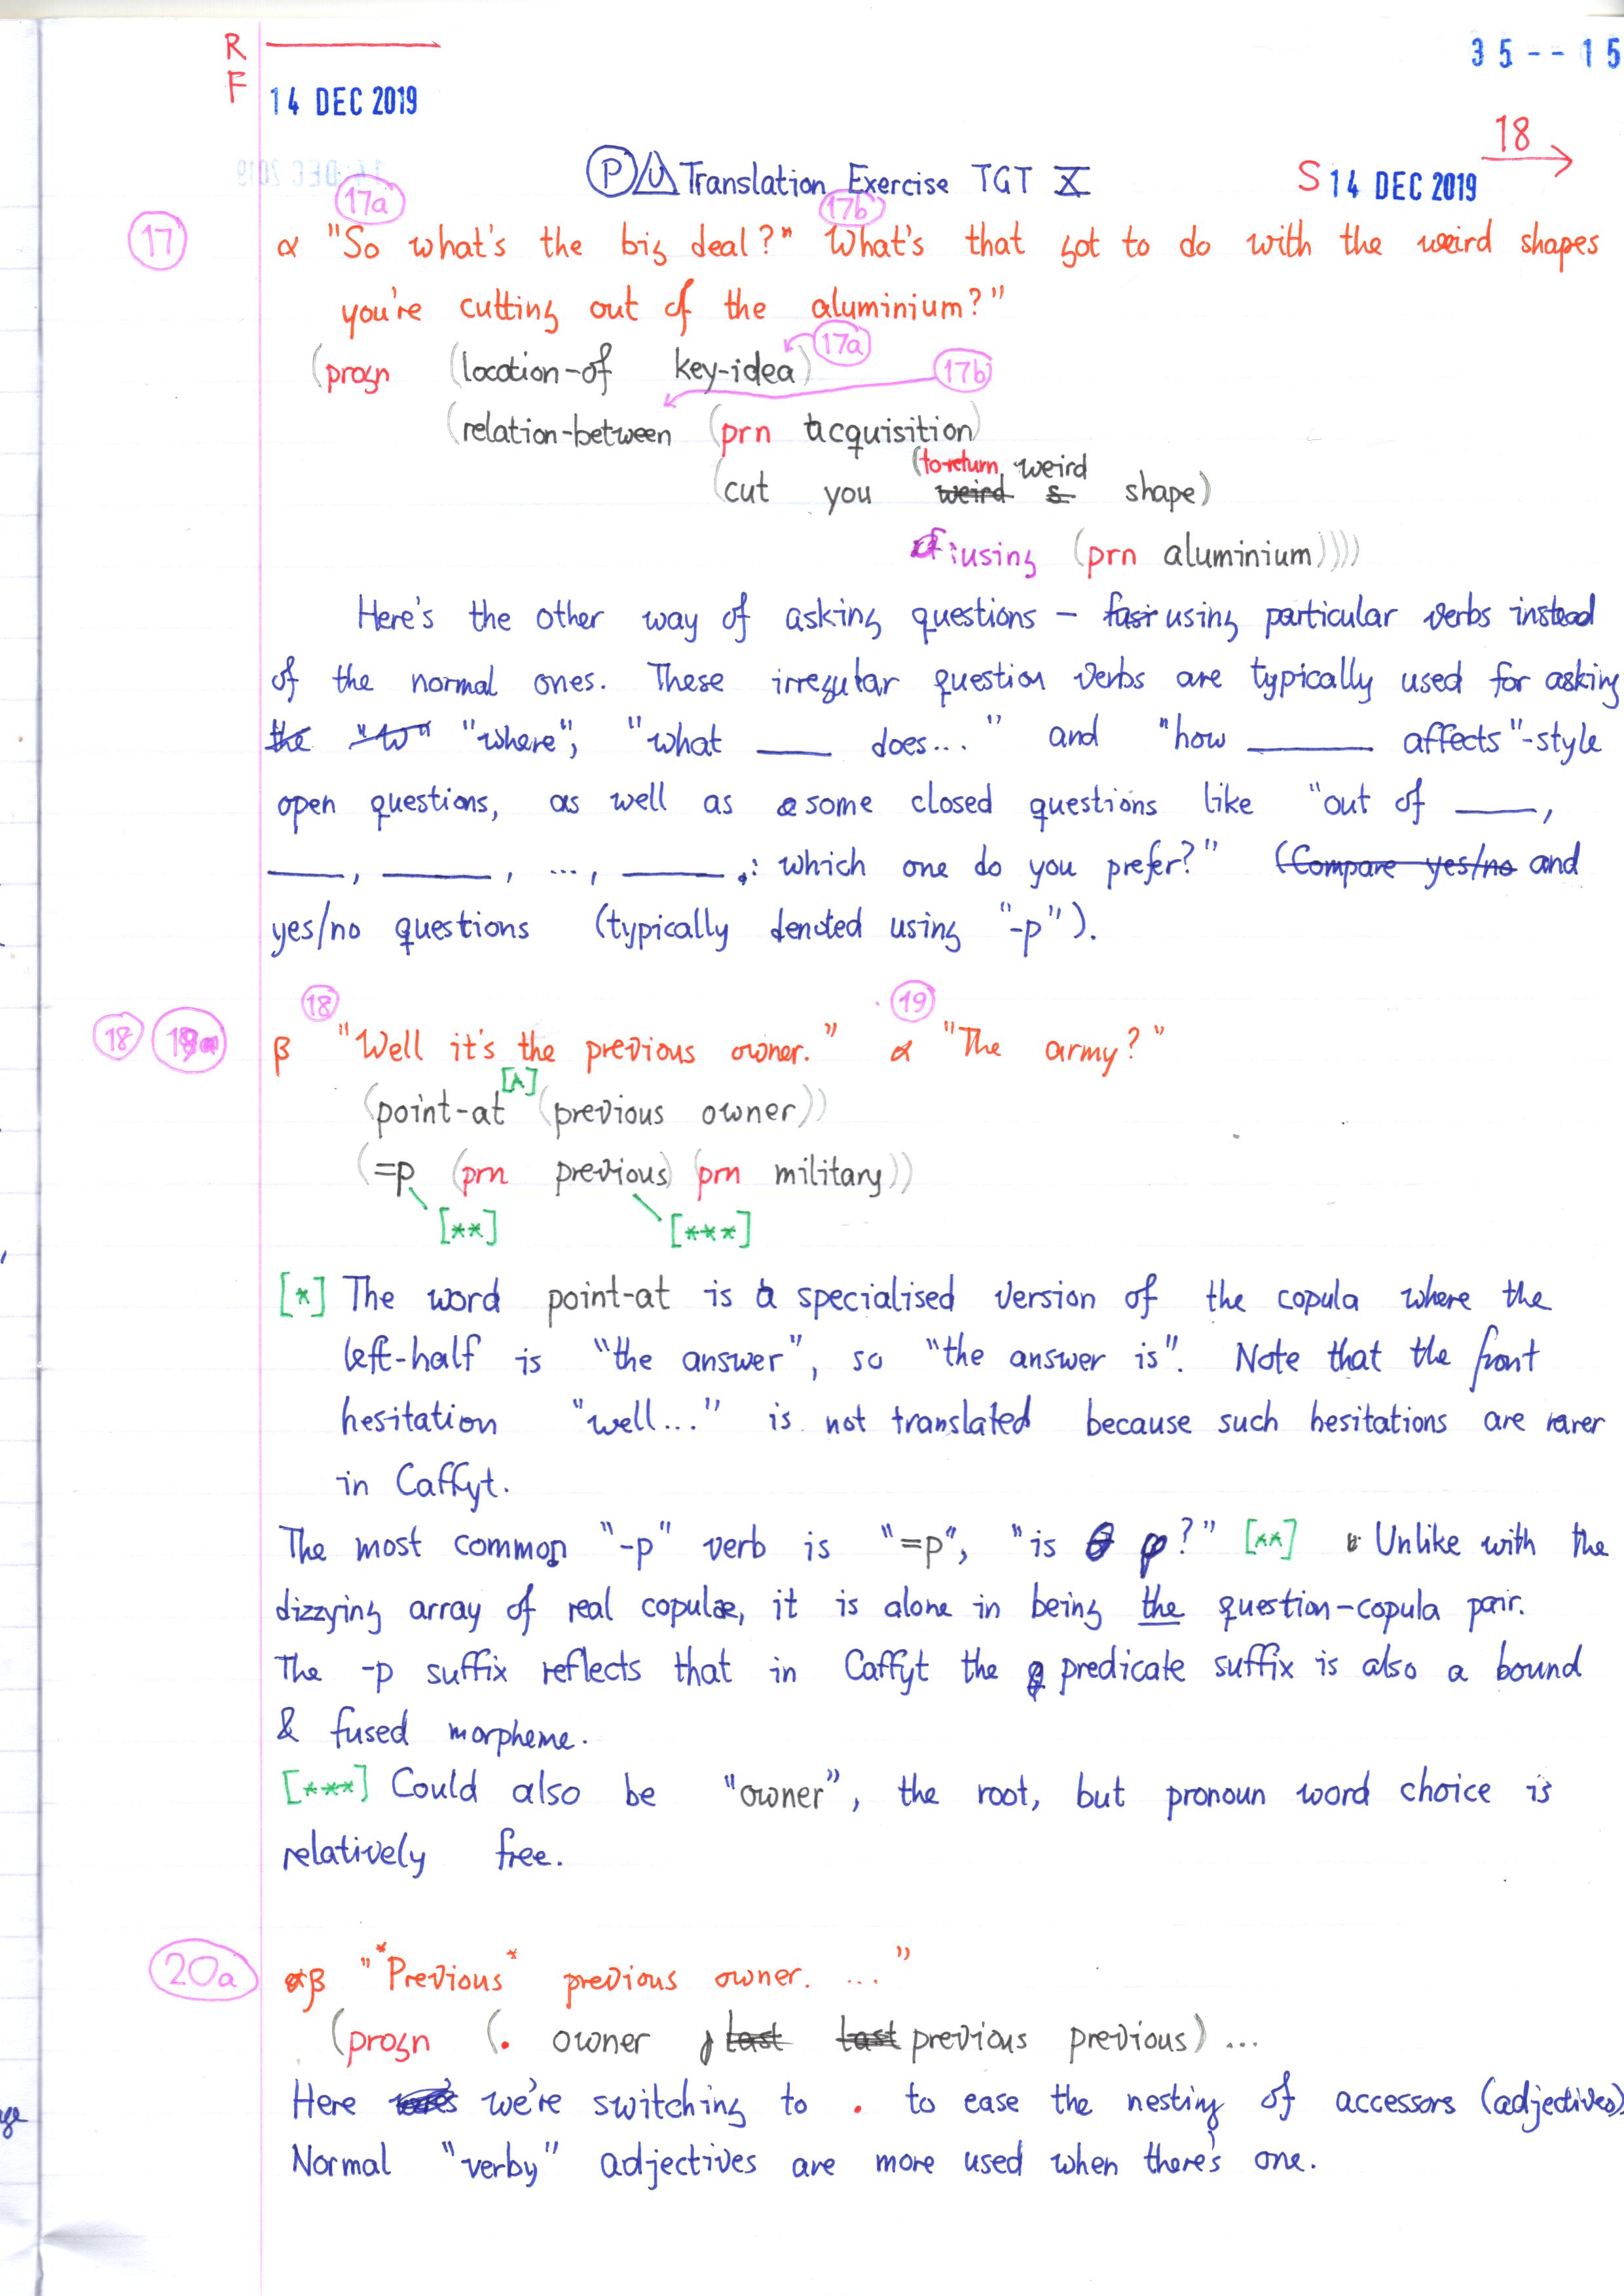 R
35--15
F 14 DEC 2019
18
Ⓟ Translation Exercise TGT X S 14 DEC 2019
17a 17b
17 α "So what's the big deal?" What's that got to do with the weird shapes
you're cutting out of the aluminium?"
(progn (location-of key-idea) 17a
17b
(relation-between (prn acquisition)
(to-return weird
(cut you weird s shape)
:using (prn aluminium))))
Here's the other way of asking questions – using particular verbs instead
of the normal ones. These irregular question verbs are typically used for asking
the "w" "where", "what ____ does..." and "how ____ affects"-style
open questions, as well as some closed questions like "out of ____,
____, ____, ..., ____: which one do you prefer?" (Compare yes/no and
yes/no questions (typically denoted using "-p").
18 19
18 β "Well it's the previous owner." α "The army?"
[*]
(point-at (previous owner))
(=p (prn previous) (prn military))
[**] [***]
[*] The word point-at is a specialised version of the copula where the
left-half is "the answer", so "the answer is". Note that the front
hesitation "well..." is not translated because such hesitations are rarer
in Caffyt.
The most common "-p" verb is "=p", "is φ?" [**] Unlike with the
dizzying array of real copulæ, it is alone in being the question-copula pair.
The -p suffix reflects that in Caffyt the predicate suffix is also a bound
& fused morpheme.
[***] Could also be "owner", the root, but pronoun word choice is
relatively free.
20a β "*Previous* previous owner. ..."
(progn (. owner last last previous previous) ...
Here we're switching to . to ease the nesting of accessors (adjectives)
Normal "verby" adjectives are more used when there's one.